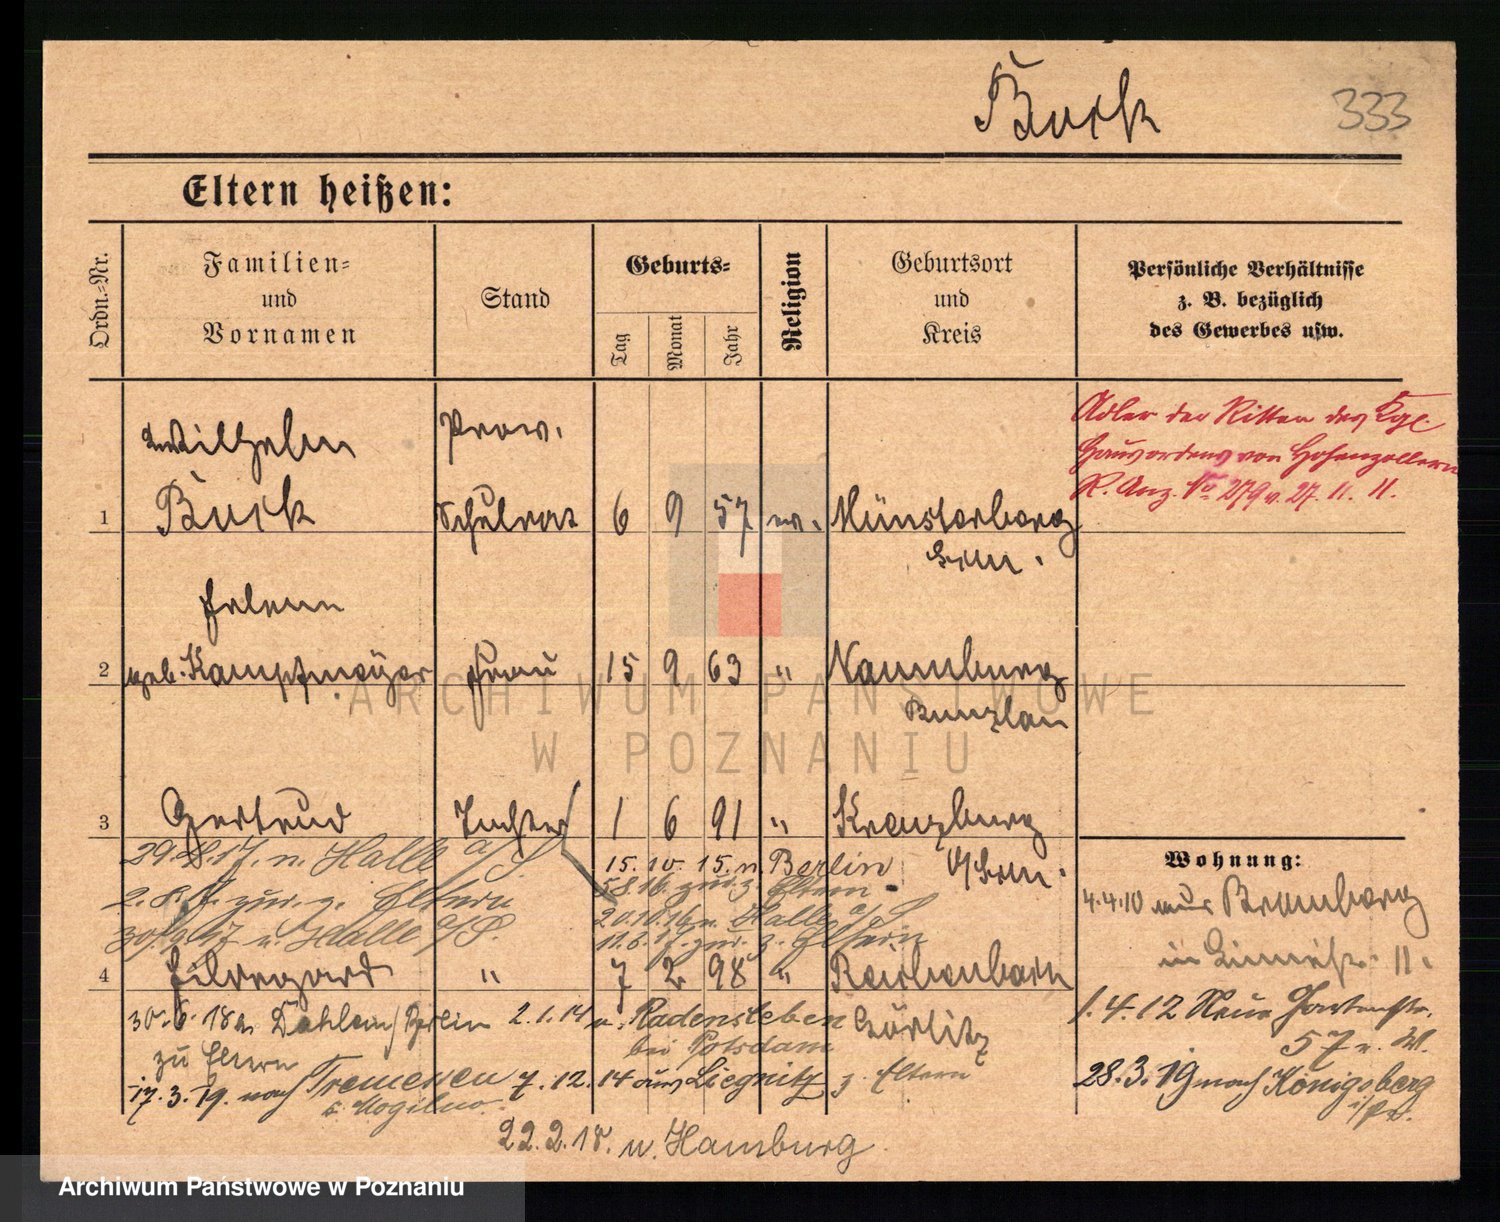 Buck
333
Eltern heißen:
Ordn.-Nr.
Familien-
und
Vornamen
Stand
Geburts-
Tag
Monat
Jahr
Religion
Geburtsort
und
Kreis
Persönliche Verhältnisse
z. B. bezüglich
des Gewerbes usw.
Wilhelm
Prov.
Adler der Ritter des Kgl.
Hausordens von Hohenzollern
R. Anz. No 279 v. 27. 11. 11.
1 Buck Schulrat 6 9 57 ev. Münsterberg
Helene
2 geb. Kampfmeÿer Frau 15 9 63 " Naumburg
Bunzlau
3 Gertrud Tochter 1 6 91 " Kreuzburg
n. Halle a/S.
15. 10. 15. n. Berlin
zur. z. Eltern
n. Halle a/S
zur. z. Eltern
n. Halle a/S.
zur. z. Eltern
4 Hildegard " 7 2 98 " Reichenbach
Görlitz
Dahlem/Berlin
zu Eltern
2.1.14 n. Radensleben
bei Potsdam
17.3.19. nach Tremessen
Kr. Mogilno.
7.12.14 aus Liegnitz z. Eltern
22.2.18. n. Hamburg
Wohnung:
4.4.10 aus Bromberg
11.
1.4.12 Neue Gartenstr.
57
28.3.19 nach Königsberg
i/Pr.
ARCHIWUM PAŃSTWOWE
W POZNANIU
Archiwum Państwowe w Poznaniu